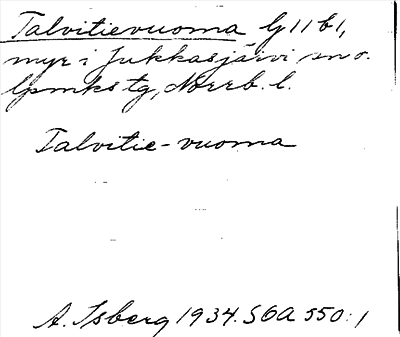 Talvitievuoma bg 11 b 1,
myr i Jukkasjärvi sn o.
lpmks tg, Norrb. l.
Talvitie-vuoma
A. Isberg 1934. SOA 550:1